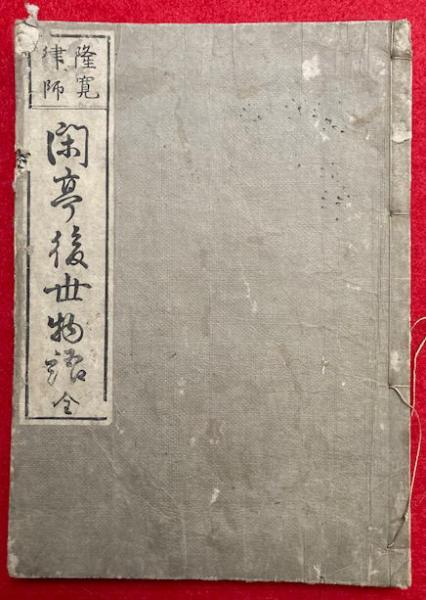 隆寛
律師
閑亭後世物語 全